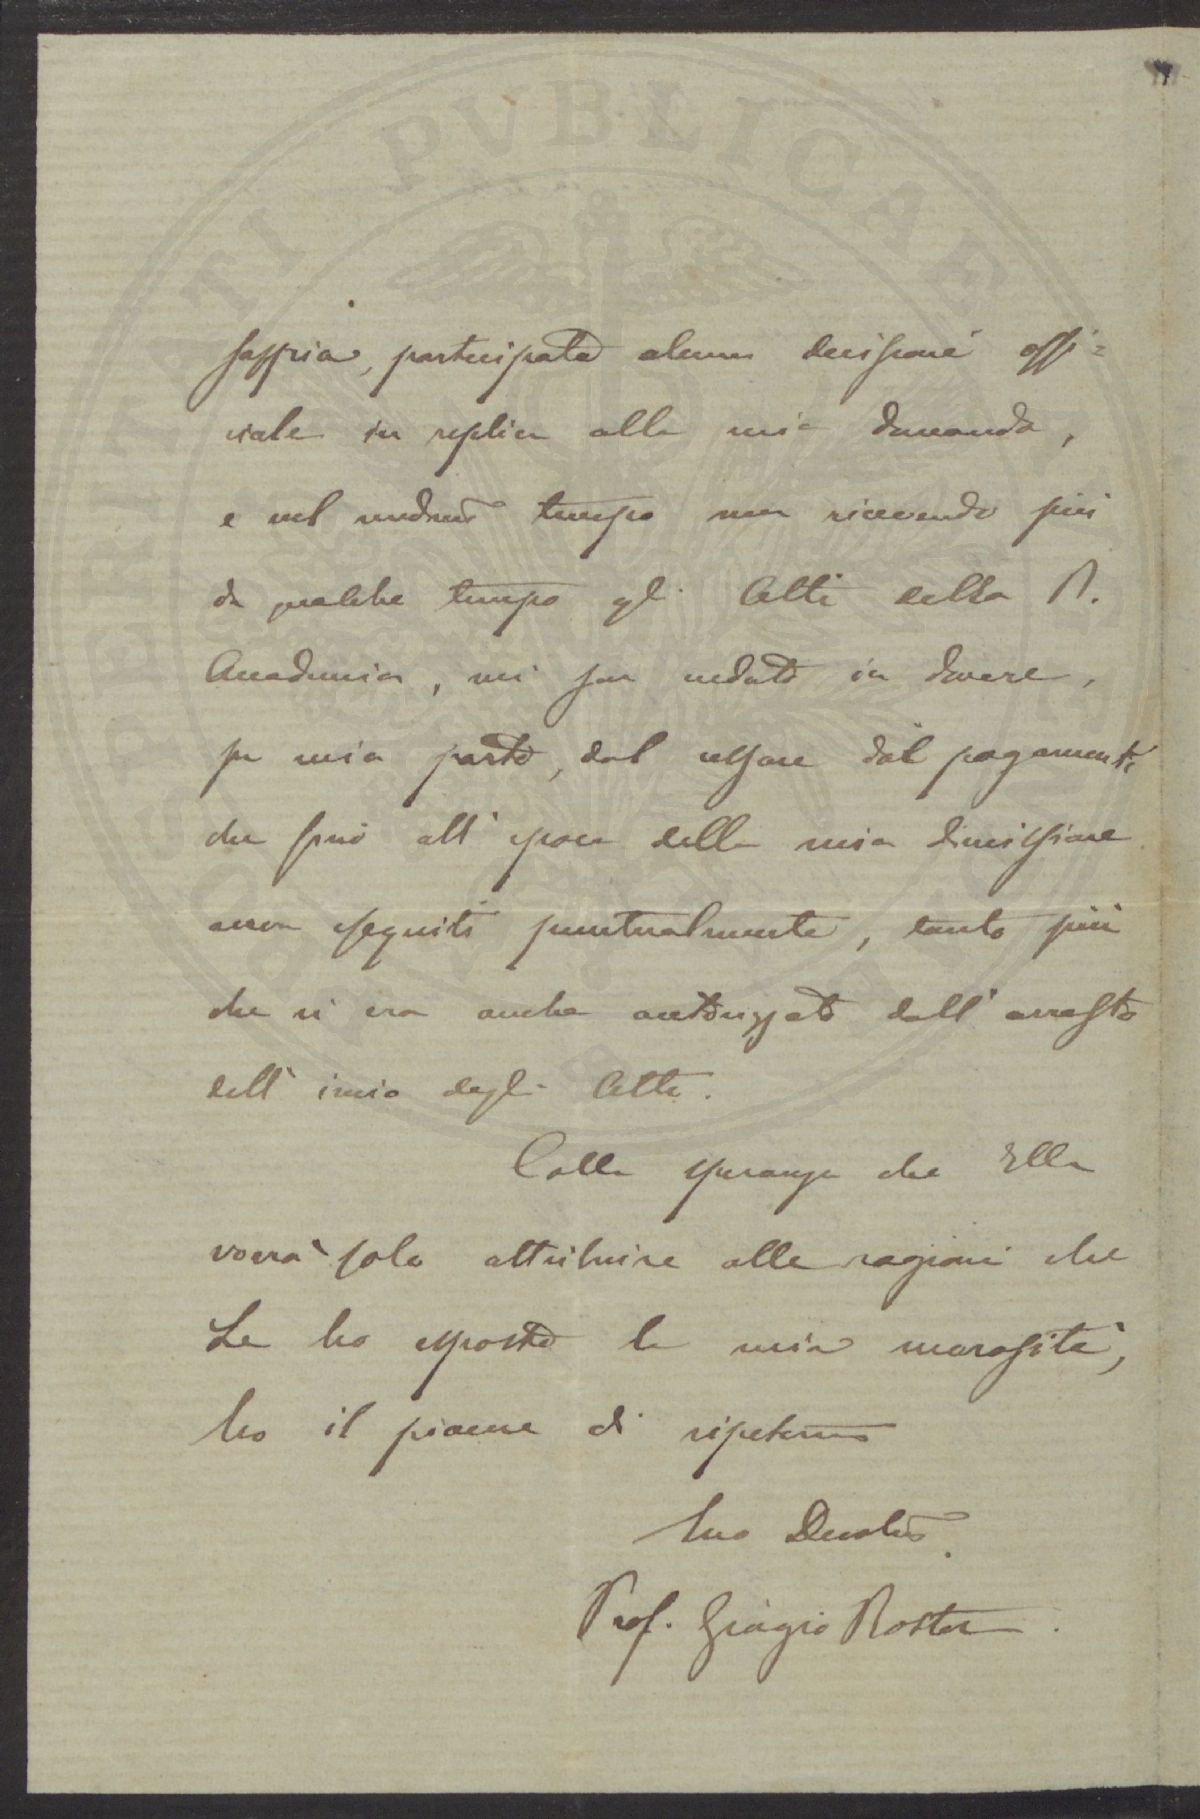 PROSPERITATI PVBLICAE
sappia, participata alcuna decisione offi=
ciale in replica alla mia domanda,
e nel medesimo tempo non ricevendo più
da qualche tempo gli Atti della R.
Accademia, mi son veduto in dovere,
per mia parte, dal cessare dal pagamenti
che fino all'epoca della mia dimissione
aveva eseguiti puntualmente, tanto più
che vi era anche autorizzato dall'arresto
dell'invio degli Atti.
Colla speranza che Ella
vorrà solo attribuire alle ragioni che
Le ho esposto la mia morosità,
ho il piacere di ripetermi
Suo Devotmo
Prof. Giorgio Roster.